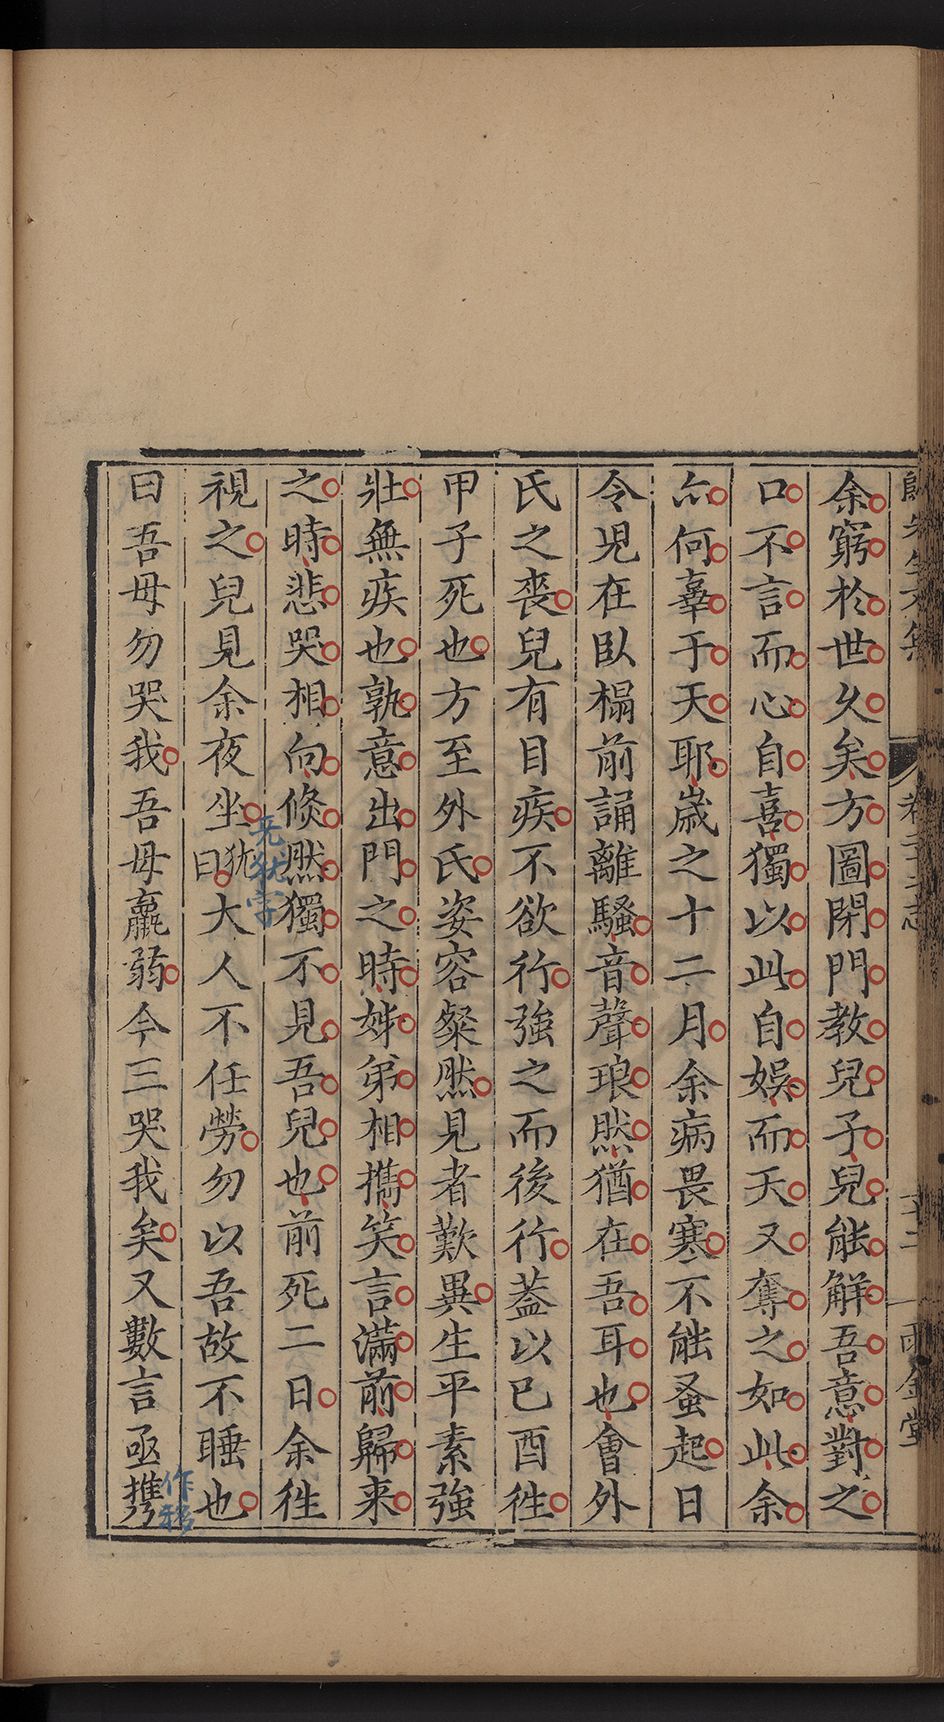 余窮於世久矣方圖閉門教兒子兒能解吾意對之
口不言而心自喜獨以此自娛而天又奪之如此余
亦何辜于天耶歳之十二月余病畏寒不能蚤起日
令児在臥榻前誦離騷音聲琅然猶在吾耳也會外
氏之喪兒有目疾不欲行強之而後行蓋以已酉徃
甲子死也方至外氏姿容粲然見者歎異生平素強
壯無疾也孰意出門之時姊弟相攜笑言滿前歸来
之時悲哭相向倏然獨不見吾兒也前死二日余徃
視之兒見余夜坐犹曰大人不任勞勿以吾故不睡也
曰吾母勿哭我吾母羸弱今三哭我矣又數言亟攜
无犹字
作移